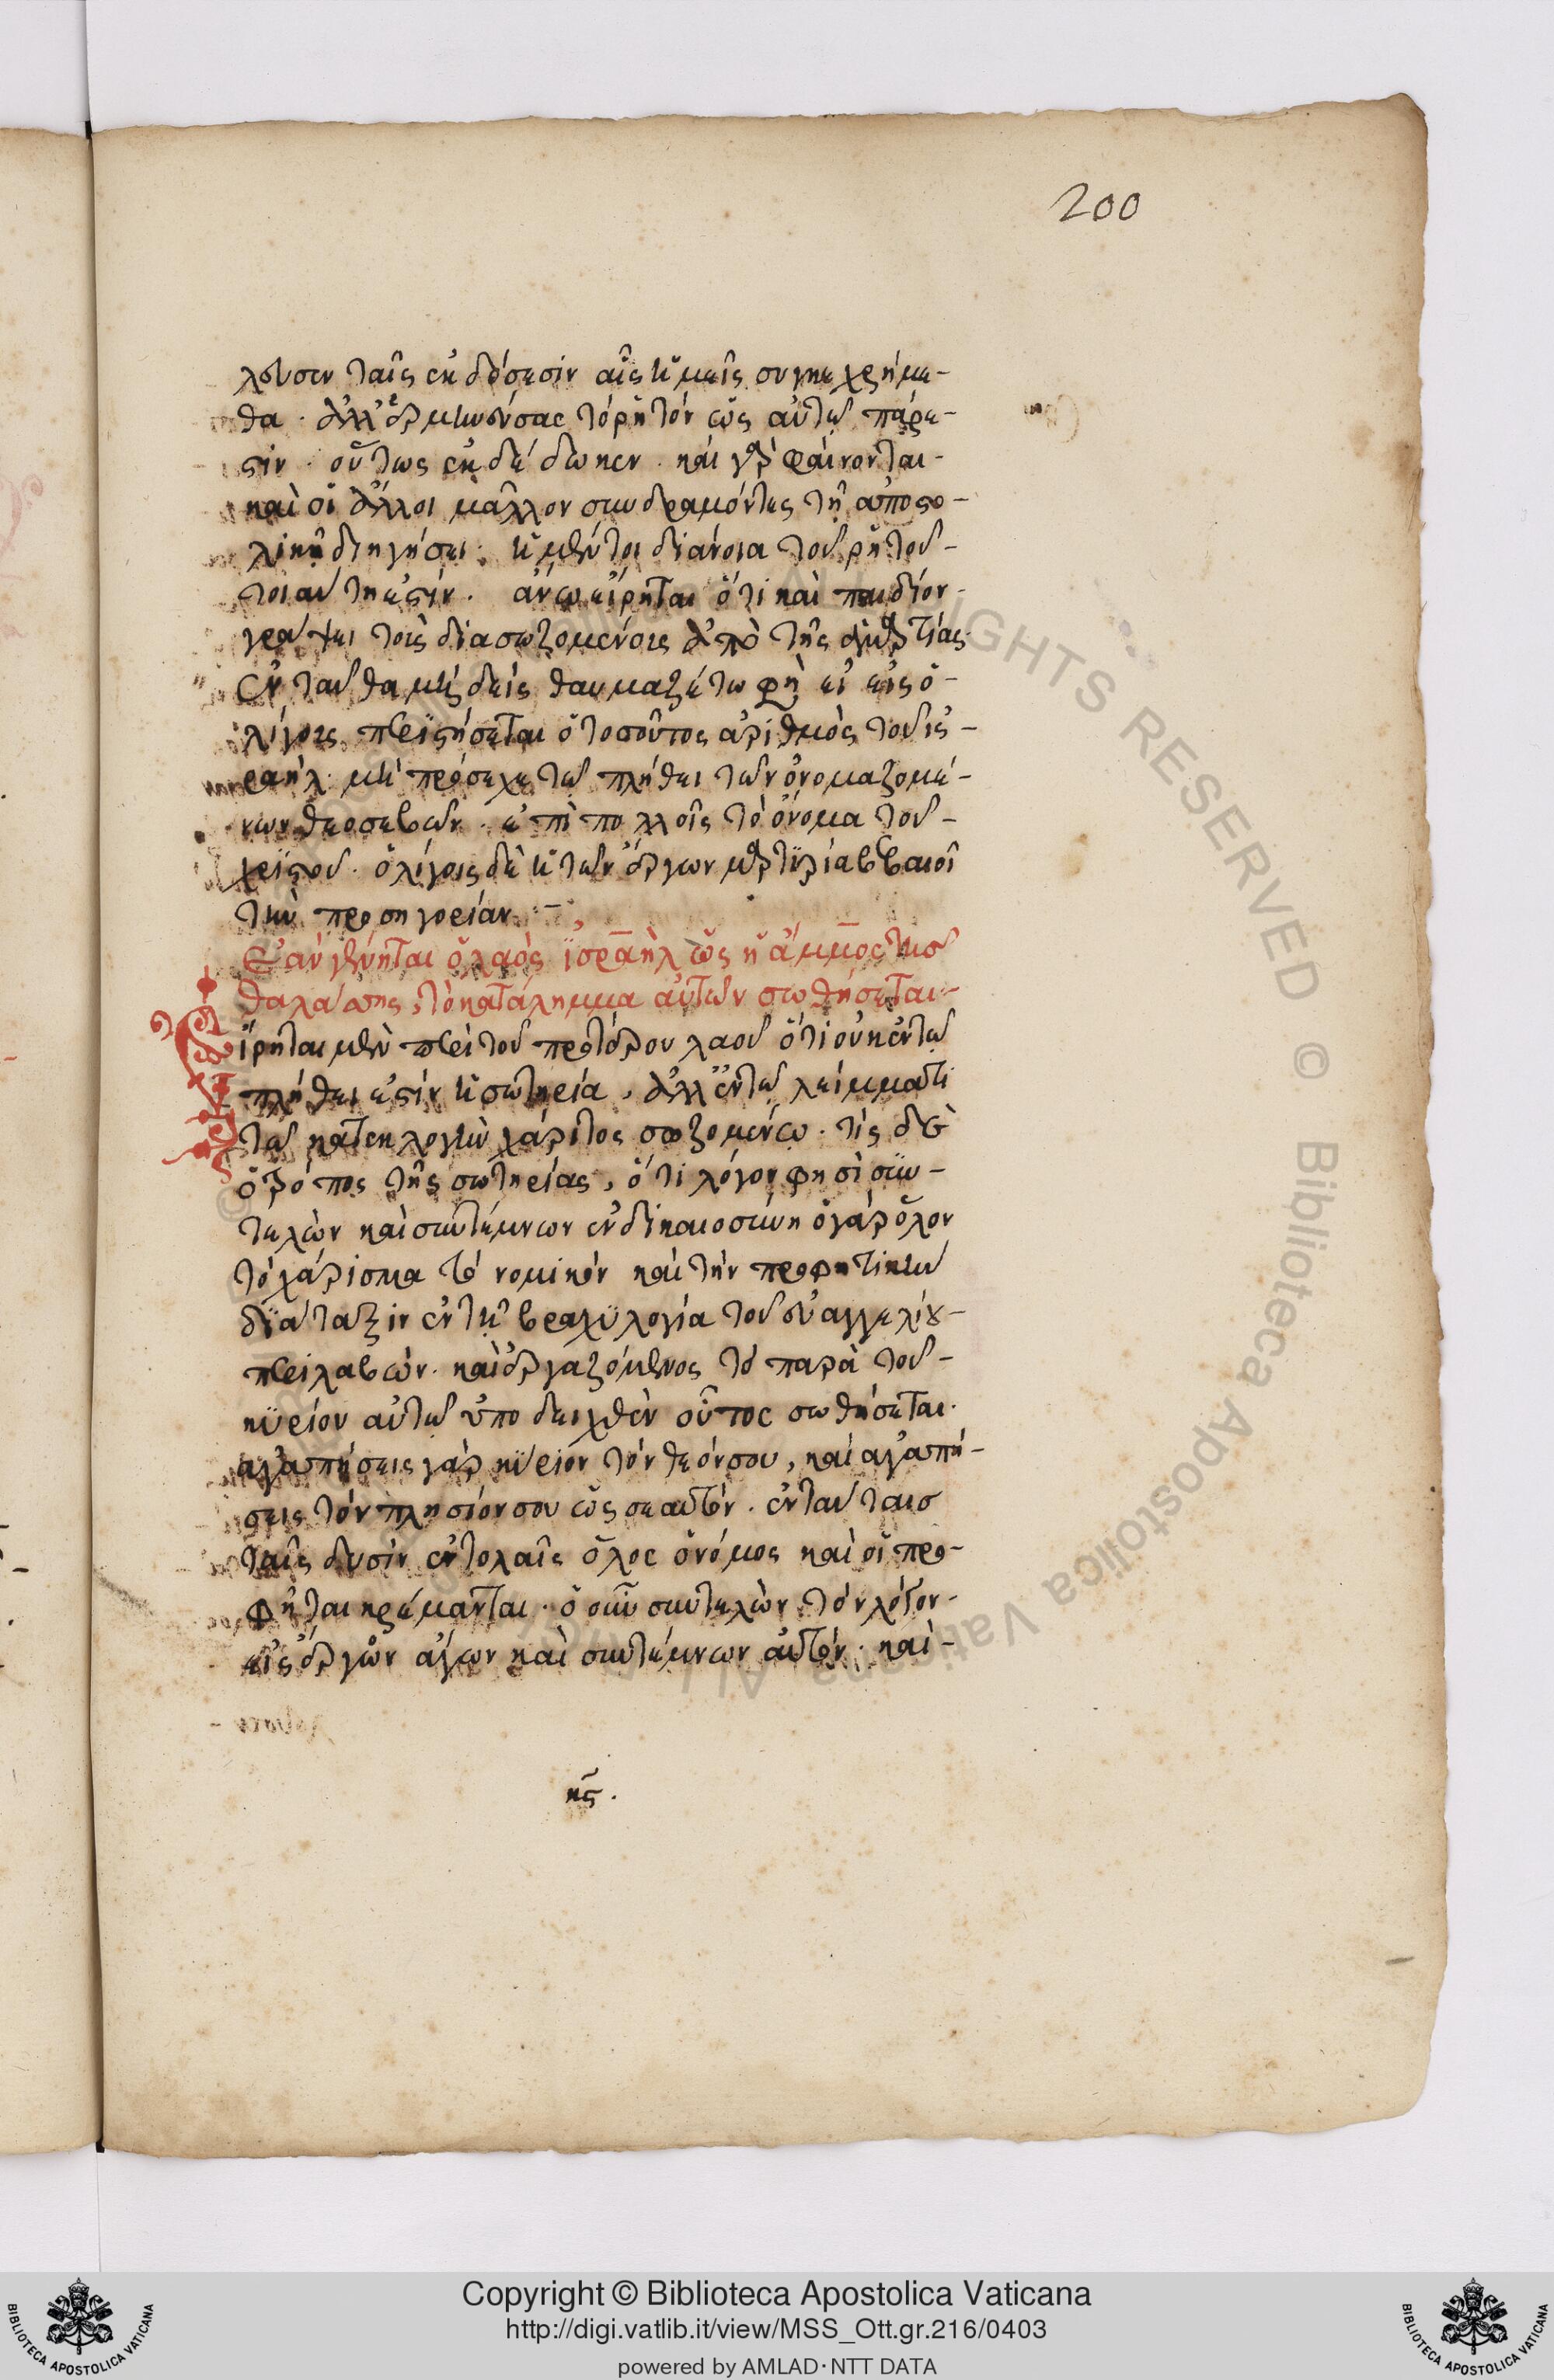 200
λουσεν ταῖς ἐκδόσεσιν αἷς ἡμεῖς συγκεχρήμε-
θα. ἀλλ' ἑρμηνεύσας τὸ ῥητὸν ὡς αὐτῷ πάρε-
στιν. οὕτως ἐκδέδωκεν. καὶ γὰρ φαίνονται-
καὶ οἱ ἄλλοι μᾶλλον συνδραμόντες τῇ ἀποστο-
λικῇ διηγήσει. ἡ μέντοι διάνοια τοῦ ῥητοῦ-
τοιαύτη ἐστίν. ἄνω εἴρηται ὅτι καὶ παιδίον-
γράψει τοὺς διασωζομένους ἀπὸ τῆς
ἐνταῦθα μηδεὶς θαυμαζέτω φη εἰ εἰς ὀ-
λίγους περιστήσεται ὁ τοσοῦτος ἀριθμὸς τοῦ ἰσ-
ραήλ. μὴ πρόσεχε τῷ πλήθει τῶν ὀνομαζομέ-
νων θεοσεβῶν. ἐπὶ πολλοῖς τὸ ὄνομα τοῦ-
χριστοῦ. ὀλίγοις δὲ ἡ τῶν ἔργων μαρτυρία βεβαιοῖ
τὴν προσηγορίαν.-
Ἐὰν γένηται ὁ λαὸς ἰσραὴλ ὡς ἡ ἄμμος τῆσ
θαλάσσης, τὸ κατάλημμα αὐτῶν σωθήσεται-
ἴρηται μὲν περὶ τοῦ προτέρου λαοῦ ὅτι οὐκ ἐν τῷ
πλήθει ἐστὶν ἡ σωτηρία, ἀλλ' ἐν τῷ λείμματι
τῷ κατ' ἐκλογὴν χάριτος σωζομένῳ. τίς δὲ
ὁ τρόπος τῆς σωτηρίας, ὅτι λόγον φησὶ συν-
τελῶν καὶ συντέμνων ἐν δικαιοσύνῃ ὁ γὰρ ὅλον
τὸ χάρισμα τὸ νομικὸν καὶ τὴν προφητικὴν
διάταξιν ἐν τῇ βραχυλογία τοῦ εὐαγγελίου-
περιλαβών. καὶ ἐργαζόμενος τὸ παρὰ τοῦ-
κυρίου αὐτῷ ὑποδειχθὲν οὗτος σωθήσεται.
ἀγαπήσεις γὰρ κύριον τὸν θεόν σου, καὶ ἀγαπή-
σεις τὸν πλησίον σου ὡς σεαυτόν. ἐν ταύταισ
ταῖς δυσὶν ἐντολαῖς ὅλος ὁ νόμος καὶ οἱ προ-
φῆται κρέμανται. ὁ οὖν συντελῶν τὸν λόγον-
εἰς ἔργον ἄγων καὶ συντέμνων αὐτόν. καὶ-
κς.
Copyright © Biblioteca Apostolica Vaticana
http://digi.vatlib.it/view/MSS_Ott.gr.216/0403
powered by AMLAD·NTT DATA